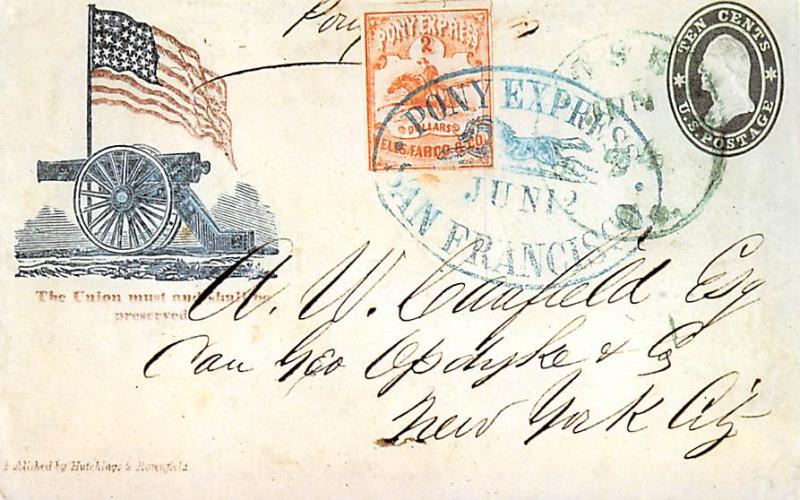 Pony
PONY EXPRESS
2
DOLLARS
ELLS, FARGO & CO.
PONY EXPRESS
JUN 12
SAN FRANCISCO
TEN CENTS
U.S. POSTAGE
The Union must and shall be
preserved
W. Canfield Esq
Care Geo Opdyke & Co
New York City
blished by Hutchings & Rosenfield